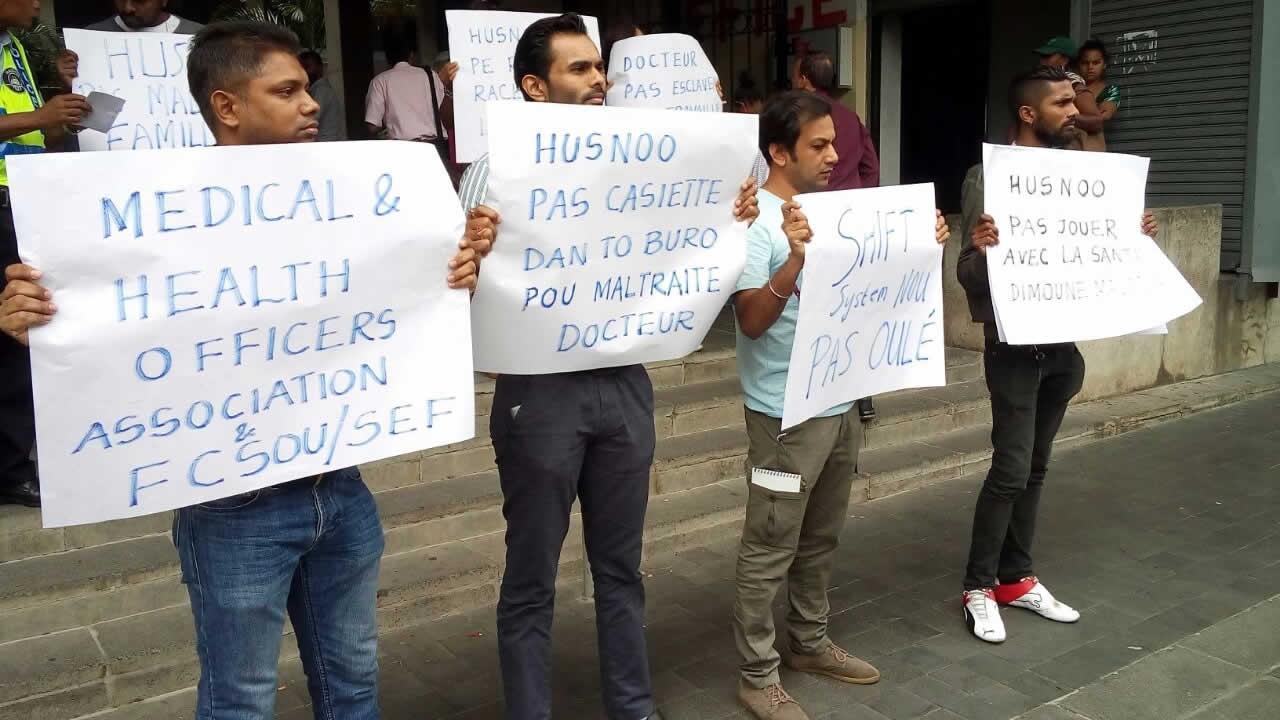 HUS
MAL
FAMILL
HUSN
PE
RACE
DOCTEUR
PAS ESCLAVE
MEDICAL &
HEALTH
OFFICERS
ASSOCIATION
&
FCSOU/SEF
HUSNOO
PAS CASIETTE
DAN TO BURO
POU MALTRAITE
DOCTEUR
SHIFT
System NOU
PAS OULÉ
HUSNOO
PAS JOUER
AVEC LA SANTÉ
DIMOUNE